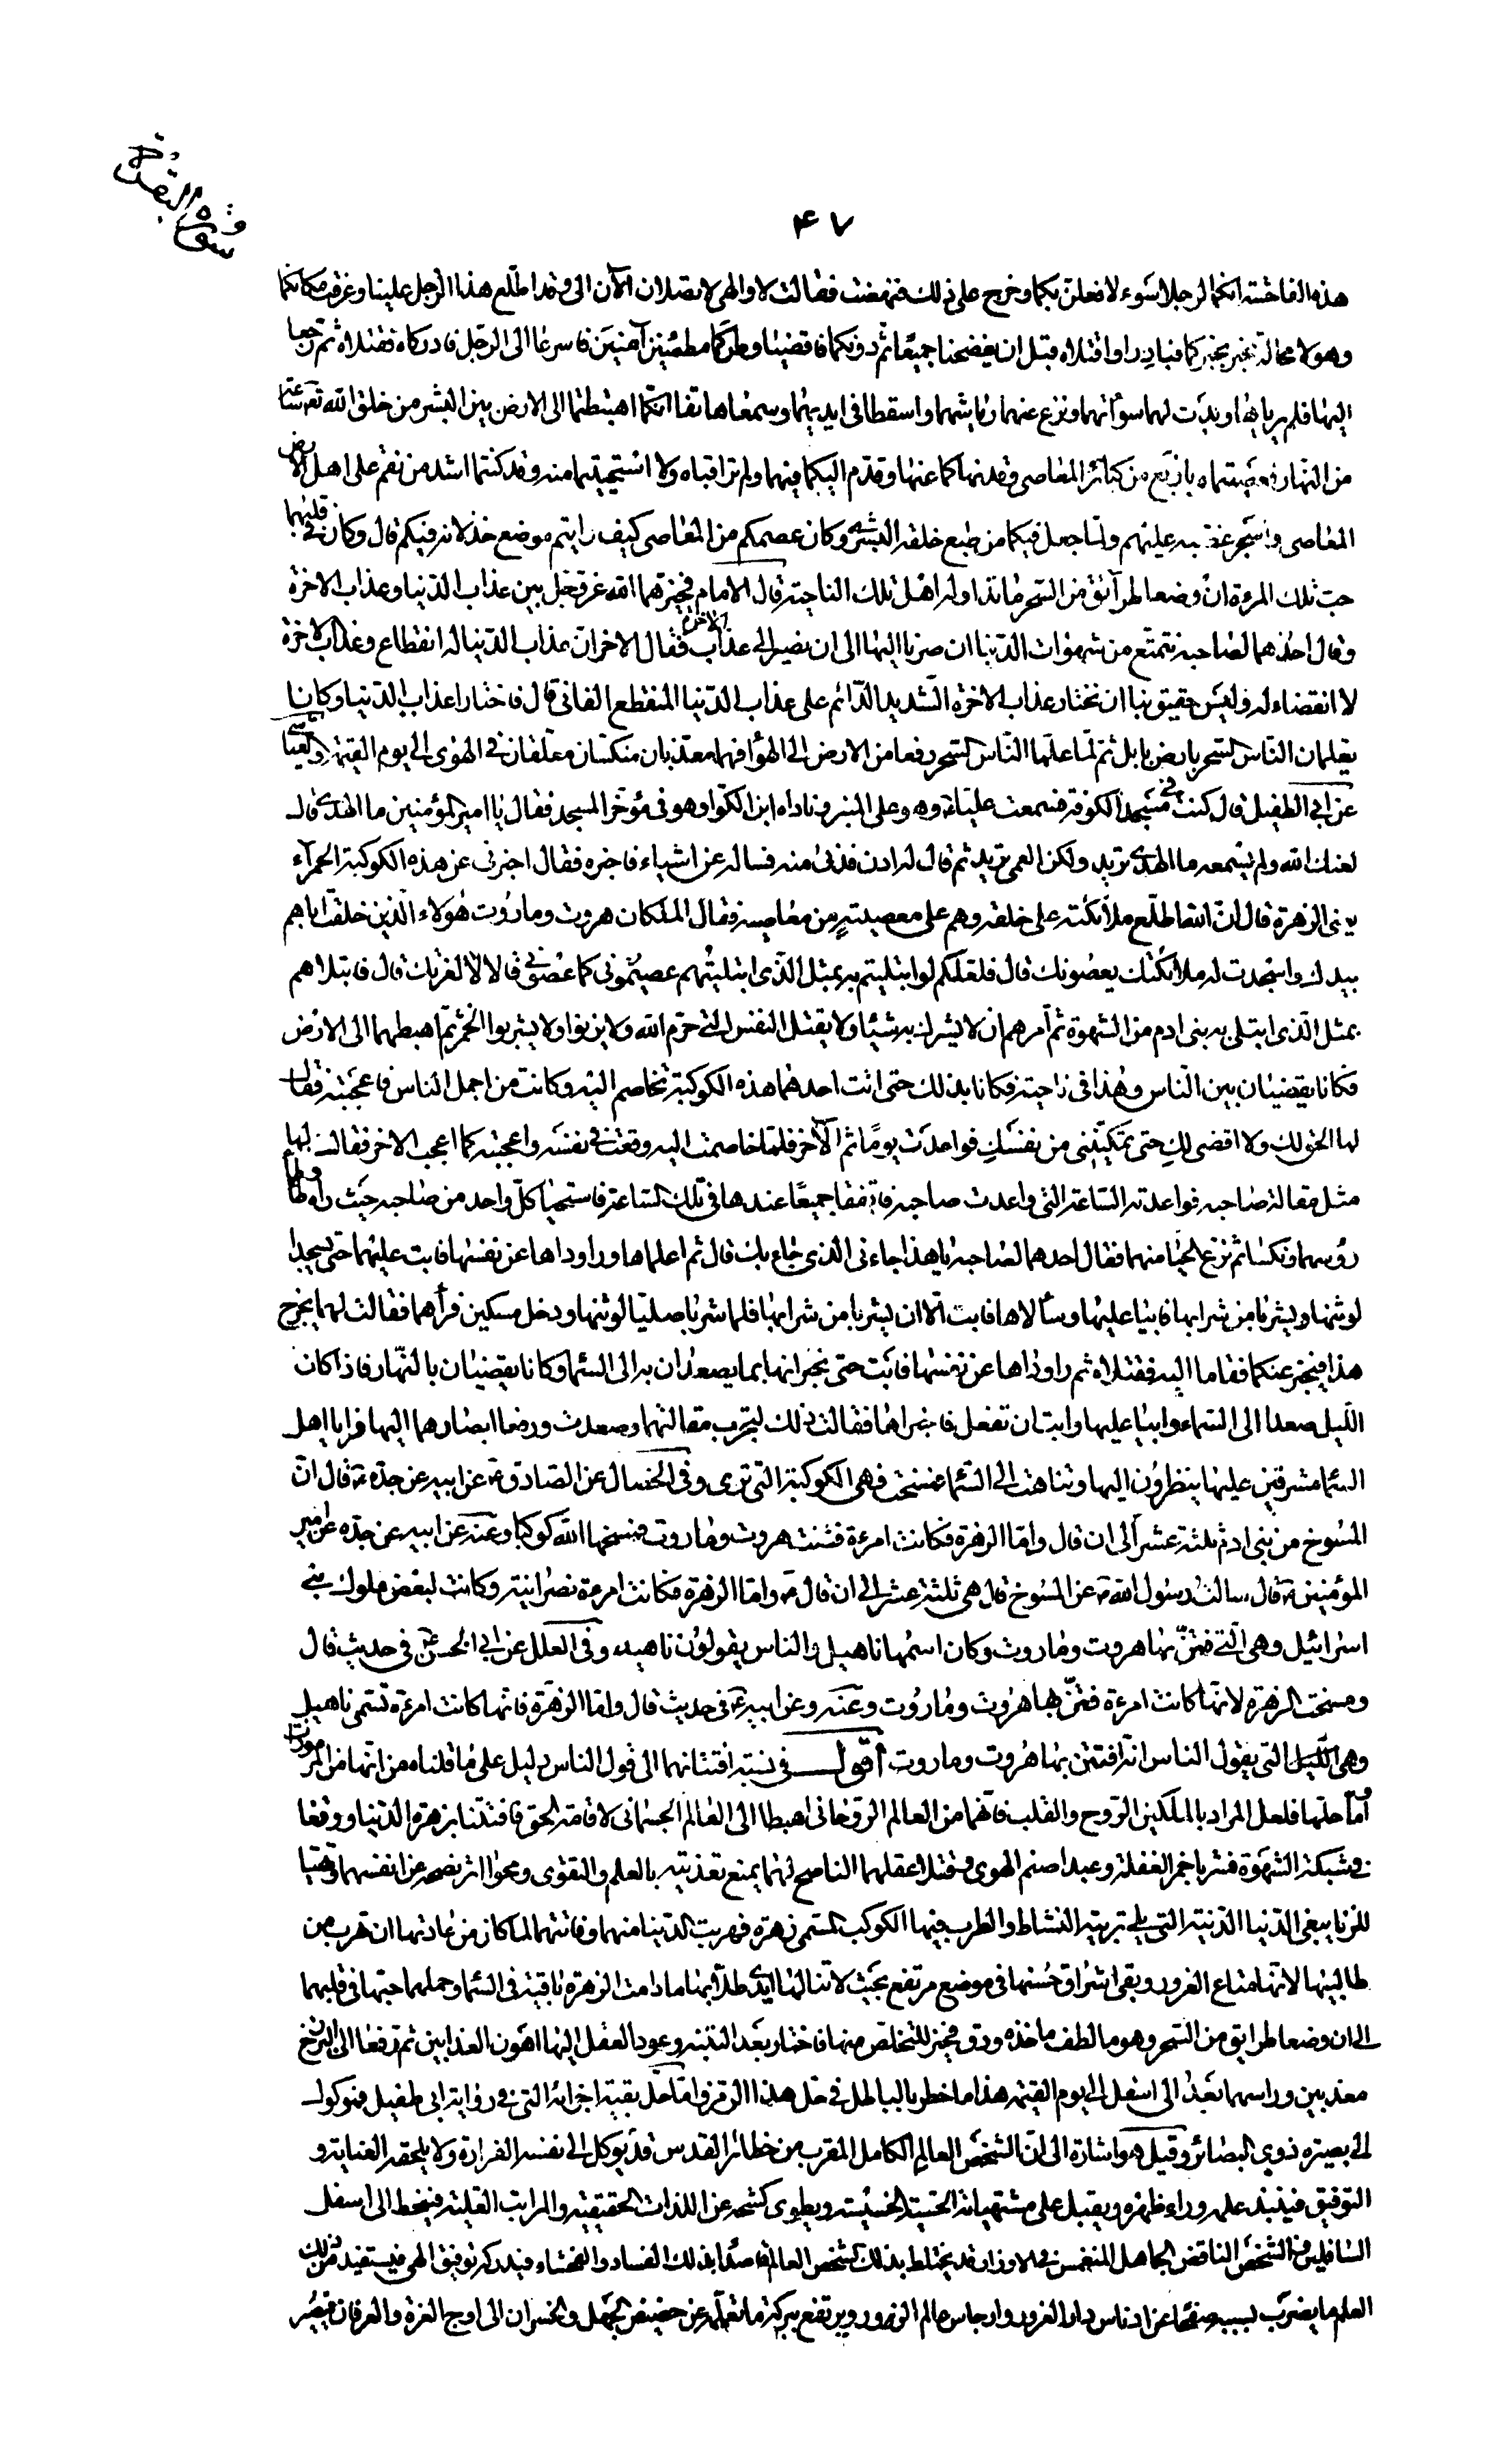 سورة البقرة
۴۷
هذه الفاحشة انكما لرجلا سوء لافعلن بكما وخرج على ذلك فنهضت فقالت لا والهى لا تصلان الآن الى وقد اطلع هذا الرجل علينا وعرف مكانكما
وهو لا محالة مخبر بخبركما فبادرا واقتلاه قبل ان يفضحنا جميعًا ثم دونكما فاقضيا وطركما مطمئنين آمنين فاسرعا الى الرجل فادركاه فقتلاه ثم رجعا
اليها فلم يرياها وبدت لهما سوأتهما ونزع عنهما رياشهما واسقطا فى ايديهما وسمعا هاتفا انكما اهبطتما الى الارض بين البشر من خلق الله تع ساعة
من النهار فعصيتماه باربع من كبائر المعاصى وقد نهاكما عنها وقدم اليكما فيها ولم تراقباه ولا استحييتما منه وقد كنتما اشد من نقم على اهل الارض
المعاصى واسجر غضبه عليهم ولما جعل فيكما من طبع خلقه البشرى وكان عصمكم من المعاصى كيف رايتم موضع خذلانه فيكم قال وكان فى قلبهما
حب تلك المرءة ان وضعا طرائق من السحر ما تداوله اهل تلك الناحية قال الامام فخيرهما الله عز وجل بين عذاب الدنيا وعذاب الاخرة
وقال احدهما لصاحبه نتمتع من شهوات الدنيا ان صرنا اليها الى ان نصير الى عذاب الاخرة فقال الاخر ان عذاب الدنيا له انقطاع وعذاب الاخرة
لا انقضاء له وليس حقيق بنا ان نختار عذاب الاخرة الشديد الدائم على عذاب الدنيا المنقطع الفانى قال فاختارا عذاب الدنيا وكانا
يعلمان الناس السحر بارض بابل ثم لما علما الناس السحر رفعا من الارض الى الهوا فهما معذبان منكسان معلقان فى الهوى الى يوم القيمة والعياشى
عن ابى الطفيل قال كنت فى مسجد الكوفة فسمعت عليا ع وهو على المنبر وناداه ابن الكوا وهو فى مؤخر المسجد فقال يا امير المؤمنين ما الهدى قال
لعنك الله ولم يسمعه ما الهدى تريد ولكن العمى تريد ثم قال له ادن فدنى منه فساله عن اشياء فاخبره فقال اخبرنى عن هذه الكوكبة الحمرآء
يعنى الزهرة قال ان الله اطلع ملائكته على خلقه وهم على معصية من معاصيه فقال الملكان هروت وماروت هؤلاء الذين خلقت اباهم
بيدك واسجدت له ملائكتك يعصونك قال فلعلكم لو ابتليتم بمثل الذى ابتليتهم عصيتمونى كما عصونى قالا لا لعزتك قال فابتلاهم
بمثل الذى ابتلى به بنى ادم من الشهوة ثم امرهم ان لا يشرك به شيئا ولا يقتل النفس التى حرم الله ولا يزنوا ولا يشربوا الخمر ثم اهبطهما الى الارض
فكانا يقضيان بين الناس وهذا فى ناحية فكانا بذلك حتى اتت احدهما هذه الكوكبة تخاصم اليه وكانت من اجمل الناس فاعجبته فقال
لها الحق لك ولا اقضى لك حتى تمكنينى من نفسك فواعدت يومًا ثم اتت الآخر فلما خاصمت اليه وقعت فى نفسه واعجبته كما اعجب الاخر فقال لها
مثل مقالة صاحبه فواعدته الساعة التى واعدت صاحبه فاتفقا جميعًا عندها فى تلك الساعة فاستحيا كل واحد من صاحبه حيث راه وطأطأ
رؤسهما ونكسا ثم نزع الحيا منهما فقال احدهما لصاحبه يا هذا جاءنى الذى جاء بك قال ثم اعلماها وراوداها عن نفسها فابت عليهما حتى يسجدا
لوثنها ويشربا من شرابها فابيا عليها وسألاها فابت الا ان يشربا من شرابها فلما شربا صليا لوثنها ودخل مسكين فرأهما فقالت لهما يخرج
هذا فيخبر عنكما فقاما اليه فقتلاه ثم راوداها عن نفسها فابت حتى يخبرانها بما يصعدان به الى السما وكانا يقضيان بالنهار فاذا كان
الليل صعدا الى السماء وابيا عليها وابت ان تفعل فاخبراها فقالت ذلك لتجرب مقالتهما وصعدت ورفعا ابصارهما اليها فرايا اهل
السما مشرفين عليهما ينظرون اليهما وتناهت الى السما فمسخت فهى الكوكبة التى ترى وفى الخصال عن الصادق ع عن ابيه عن جده ع قال ان
المسوخ من بنى ادم ثلثة عشر الى ان قال واما الزهرة فكانت امرءة فتنت هروت وماروت فمسخها الله كوكبا وعنه عن ابيه عن جده عن امير
المؤمنين ع قال سالت رسول الله ص عن المسوخ قال هى ثلثة عشر الى ان قال ص واما الزهرة فكانت امرءة نصرانية وكانت لبعض ملوك بنى
اسرائيل وهى التى فتن بها هروت وماروت وكان اسمها ناهيل والناس يقولون ناهيد وفى العلل عن ابى الحسن ع فى حديث قال
ومسخت الزهرة لانها كانت امرءة فتن بها هروت وماروت وعنه وعن ابيه ع فى حديث قال واما الزهرة فانها كانت امرءة تسمى ناهيل
وهى التى يقول الناس انه افتتن بها هروت وماروت اقول فى نسبة افتتانهما الى قول الناس دليل على ما قلناه من انها من المرموزات
واما حلها فلعل المراد بالملكين الروح والقلب فانهما من العالم الروحانى اهبطا الى العالم الجسمانى لاقامة الحق فافتتنا بزهرة الدنيا ووقعا
فى شبكة الشهوة فشربا خمر الغفلة وعبدا صنم الهوى وقتلا عقلهما الناصح لهما بمنع تغذيته بالعلم والتقوى ومحو اثر نصحه عن انفسهما وتهيا
للزنا ببغى الدنيا الدنية التى يلى تربية النشاط والطرب فيها الكوكب المسمى بزهرة فهربت الدنيا منهما وفاتتهما لما كان من عادتها ان تهرب من
طالبيها لانها متاع الغرور وبقى اشراق حسنها فى موضع مرتفع بحيث لا تنالها ايدى طلابها ما دامت الزهرة باقية فى السما وحملهما حبها فى قلبهما
الى ان وضعا طرايق من السحر وهو ما لطف ماخذه ودق فخيرا للتخلص منها فاختارا بعد التنبه وعود العقل اليهما اهون العذابين ثم رفعا الى البرزخ
معذبين وراسهما بعد الى اسفل الى يوم القيمة هذا ما خطر بالبال فى حل هذا الرمز واما حل بقية اجزائه التى فى رواية ابى طفيل فموكول
الى بصيرة ذوى البصائر وقيل هو اشارة الى ان الشخص العالم الكامل المقرب من حظائر القدس قد يوكل الى نفسه الغرارة ولا يلحقه العناية و
التوفيق فينبذ علمه وراء ظهره ويقبل على مشتهياته الحسية الخسيسة ويطوى كشحه عن اللذات الحقيقية والمراتب العلية فينحط الى اسفل
السافلين والشخص الناقص الجاهل المنغمس فى الاوزار قد يختلط بذلك الشخص العالم قاصدًا بذلك الفساد والفحشاء فيدركه توفيق الهى فيستفيد من ذلك
العلم ما يضرب بسببه صفحًا عن ادناس دار الغرور وارجاس عالم الزور ويرتفع ببركة ما تعلمه عن حضيض الجهل والخسران الى اوج العزة والعرفان فيصير